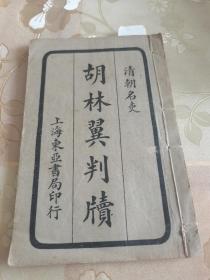 清朝名吏
胡林翼判牘
上海東亚書局印行